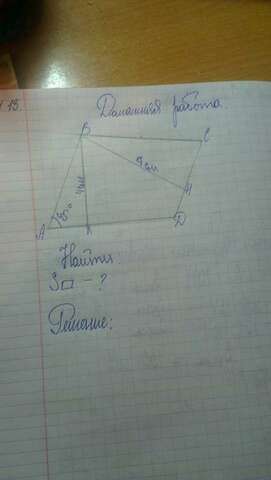 13.
Домашняя работа.
B
C
9 см
4 см
H
30°
A
K
D
Найти
S▱ - ?
Решение: